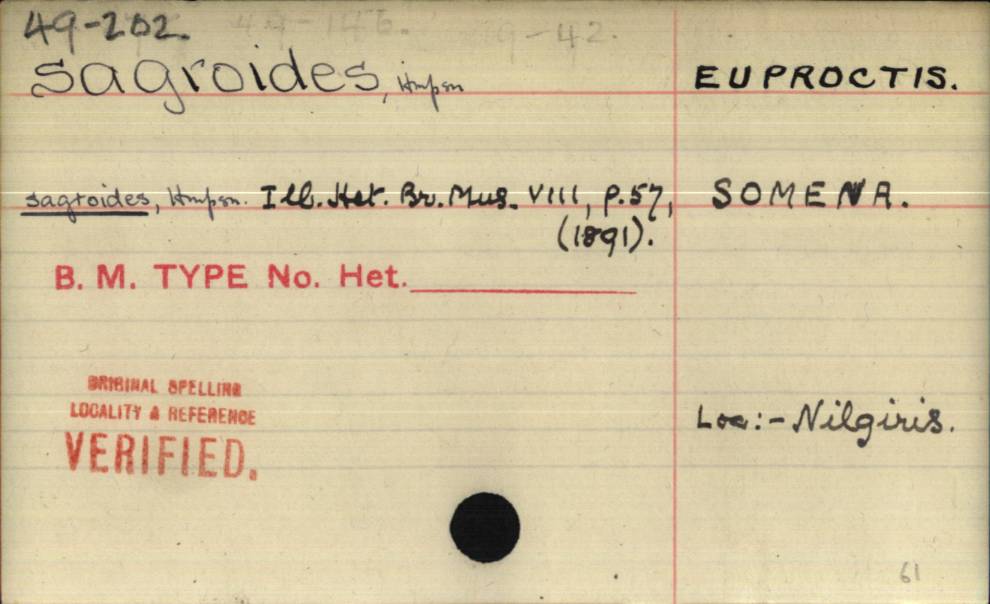 49-202.
sagroides, Hmpsn
EUPROCTIS.
sagroides, Hmpsn. Ill. Het. Br. Mus. VIII, p.57,
(1891).
SOMENA.
B. M. TYPE No. Het.
ORIGINAL SPELLING
LOCALITY & REFERENCE
VERIFIED.
Loc:- Nilgiris.
61